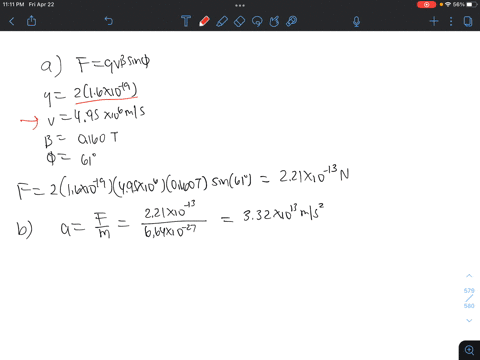 11:11 PM Fri Apr 22
56%
a) F=qvBsinϕ
q= 2(1.6x10^-19)
→ v= 4.95 x10^6 m/s
B= 0.160 T
Φ= 61°
F= 2(1.6x10^-19)(4.95x10^6)(0.160T) sin(61°) = 2.21x10^-13 N
b) a= F/m = 2.21x10^-13/6.64x10^-27 = 3.32x10^13 m/s^2
579
/
580